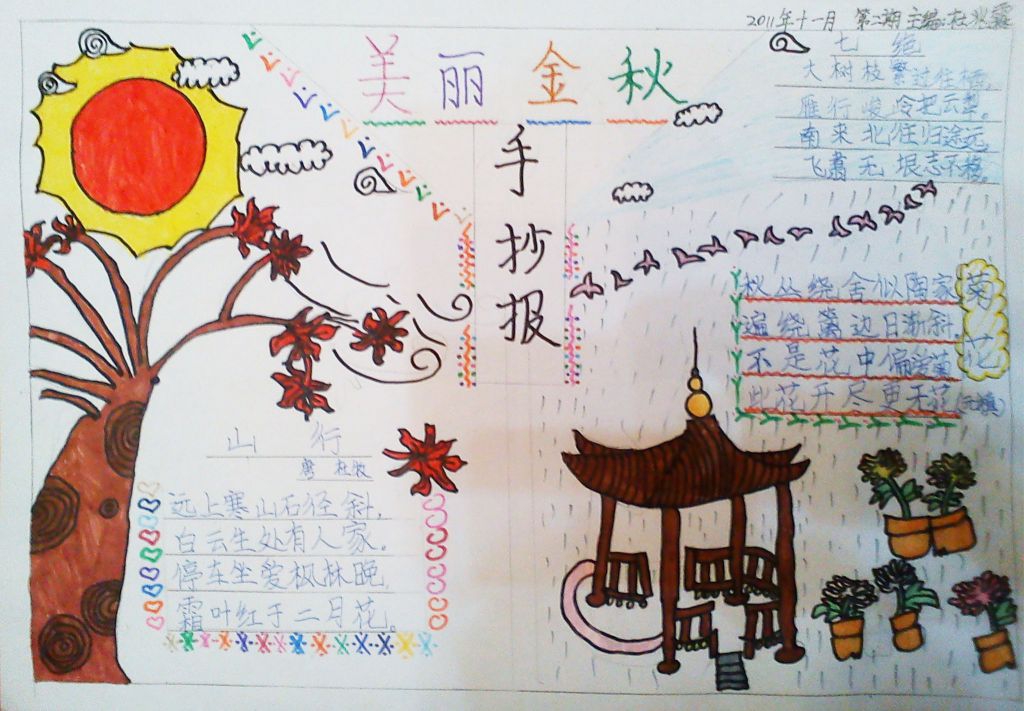 2011年十一月 第二期 主编:杜
美丽金秋
手抄报
七绝
大树枝繁过往
雁行峻冷把云犁。
南来北往归途远,
飞翥无垠志不移。
菊花
秋丛绕舍似陶家
遍绕篱边日渐斜,
不是花中偏爱菊
此花开尽更无花(元稹)
山行
唐 杜牧
远上寒山石径斜,
白云生处有人家。
停车坐爱枫林晚,
霜叶红于二月花。